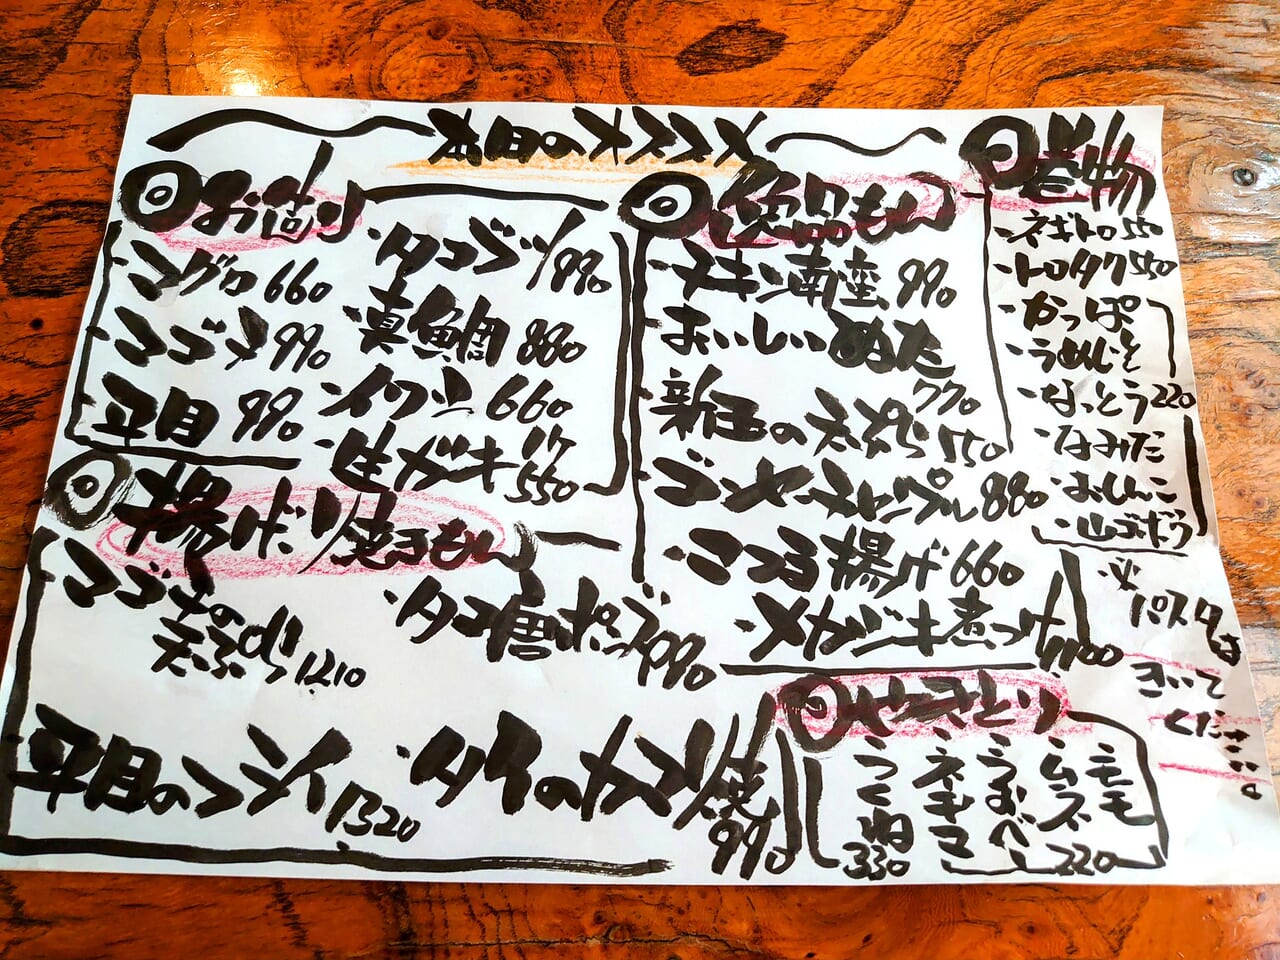 本日のオススメ
お造り
・マグロ 660
・マゴチ 990
・平目 990
・タコブツ 990
・真鯛 880
・イワシ 660
・生ガキ 1ケ 550
逸品もん
・チキン南蛮 990
・おいしいぬた 770
・新玉の天ぷら 550
・ゴーヤーチャンプル 880
揚げ 660
・メカジキ煮つけ 1100
巻物
・ネギトロ 550
・トロタク 550
・かっぱ
・うめじそ
・なっとう 220
・なみだ
・おしんこ
・山ゴボう
揚げたり焼きもん
・マゴチの天ぷら 1210
・タコ唐ポンズ 990
・平目の 1320
・タイのカマ塩焼 990
やきとり
モモ
ムネ
うおべー
ネギマ
220
つくね
330
※パスタは
きいて
ください。